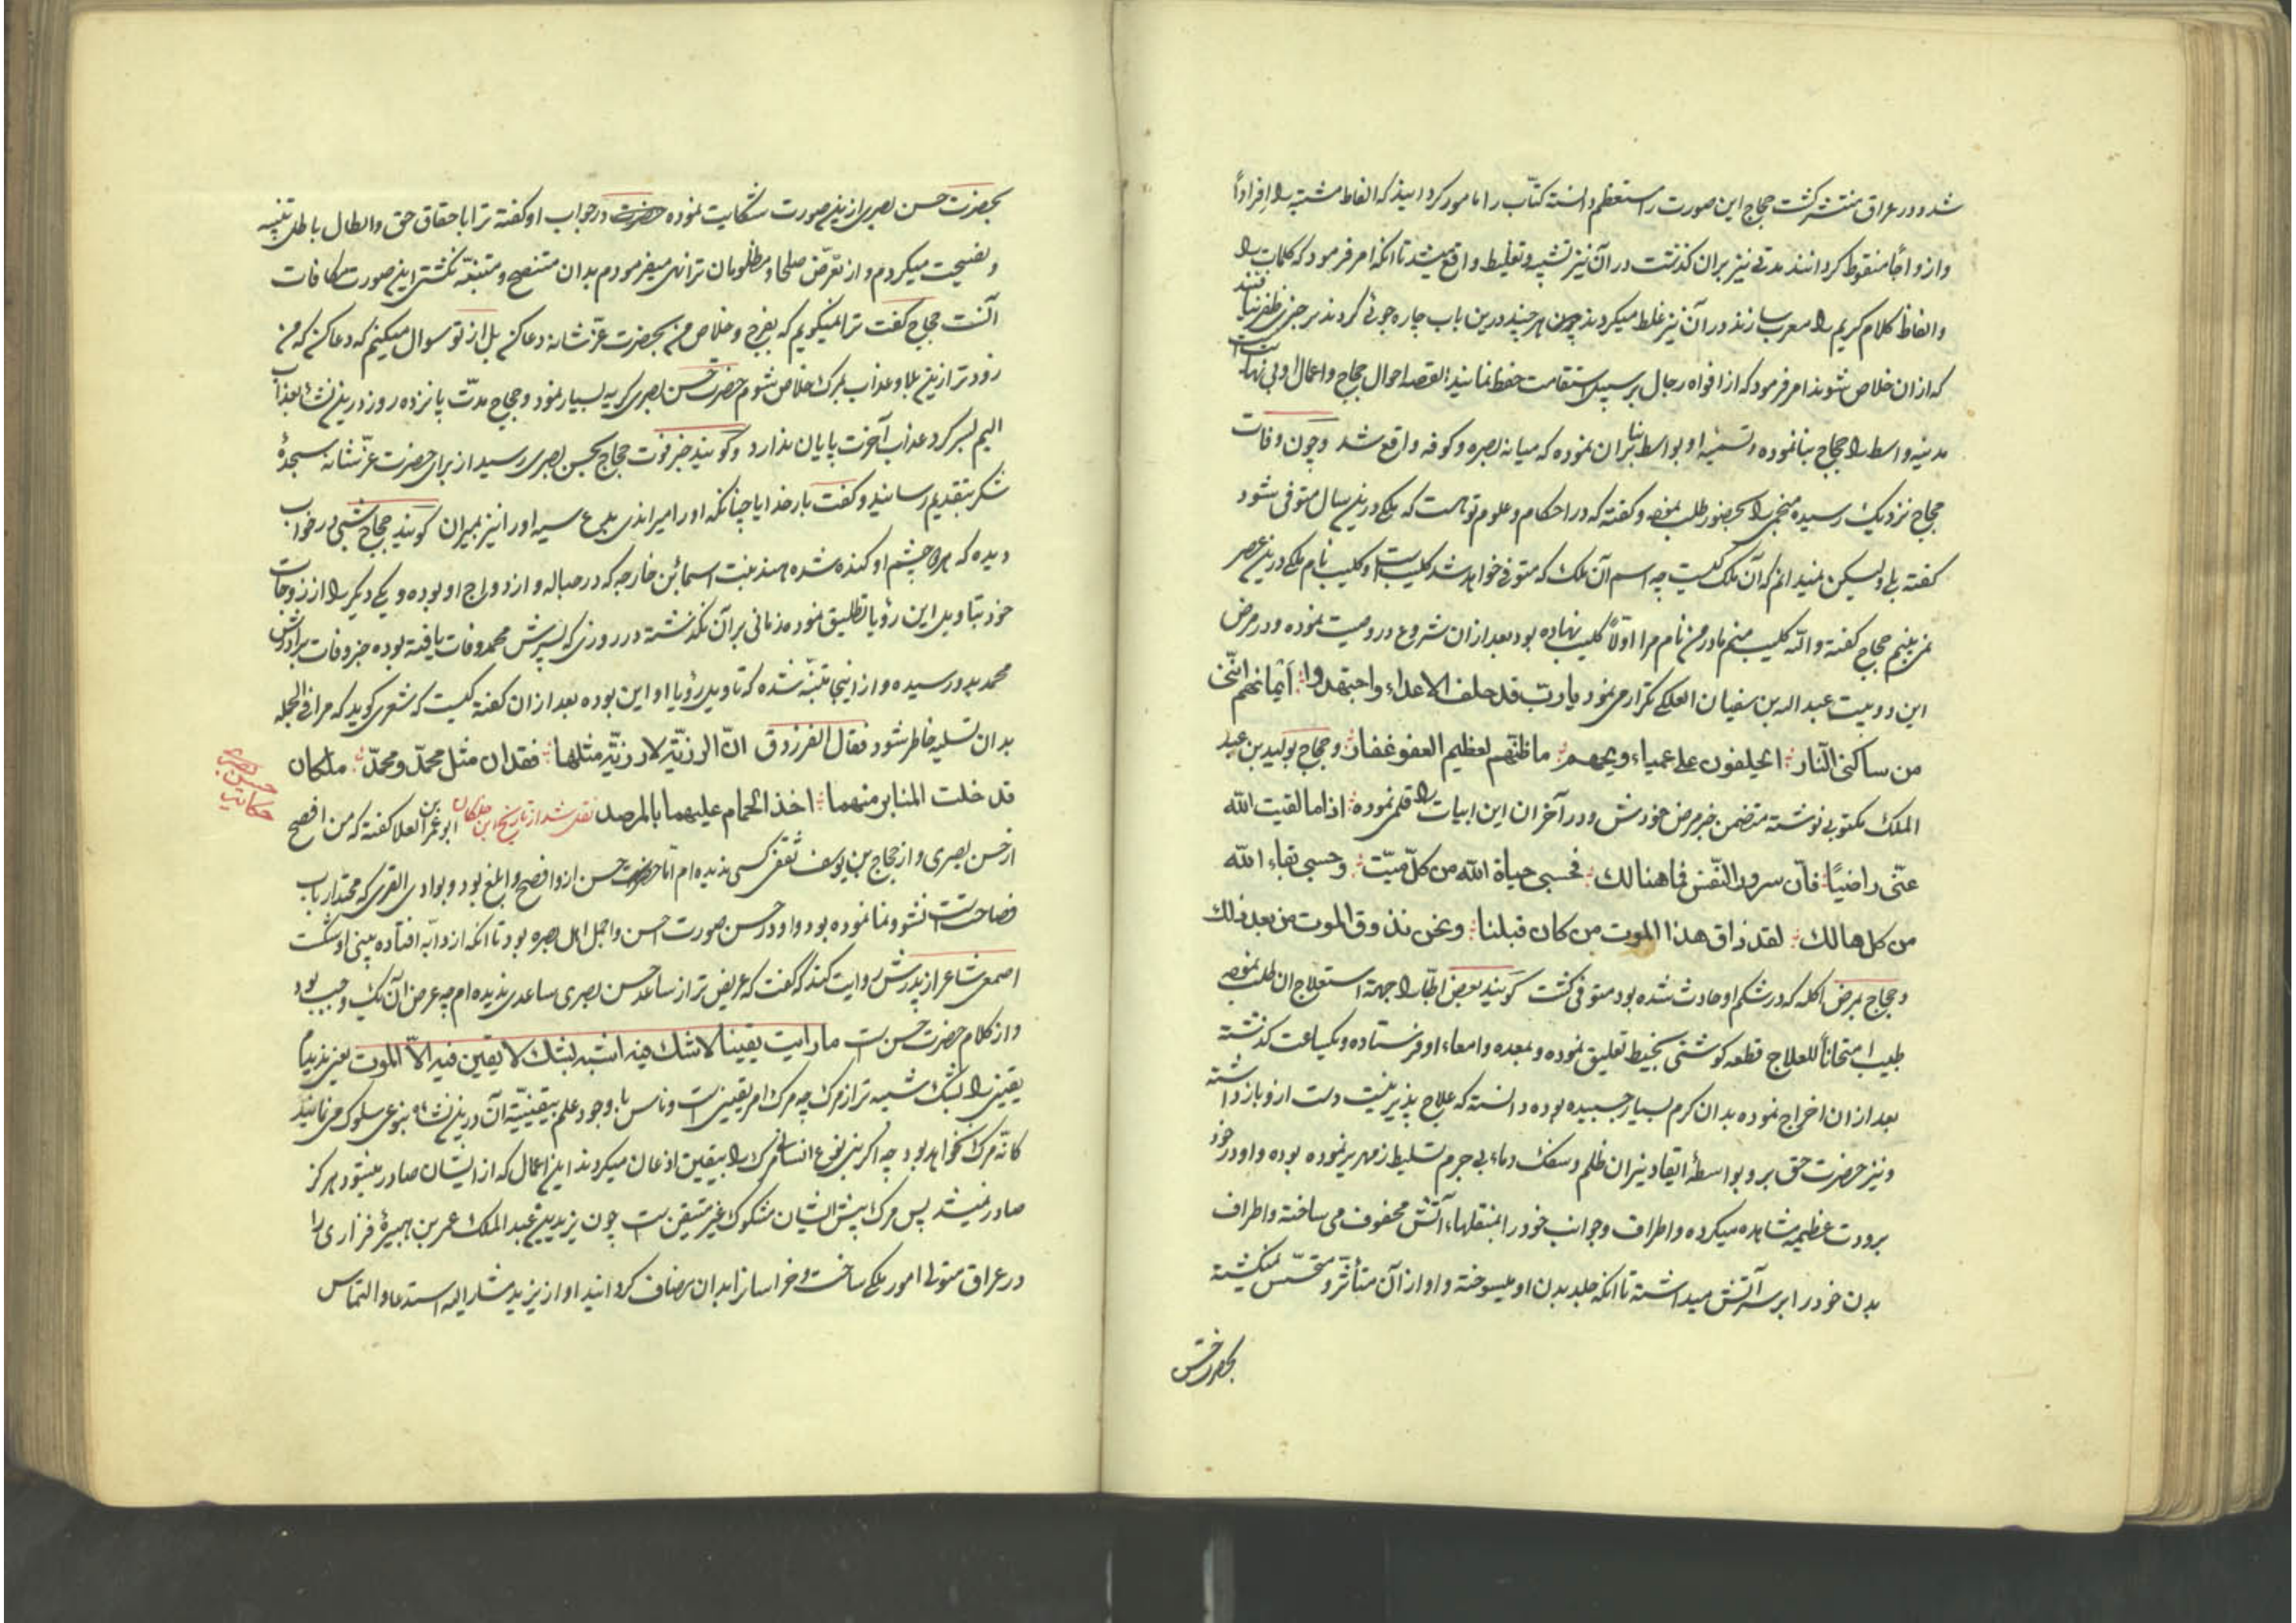 شد و در عراق منتشر کشت حجاج این صورت را مستعظم دانسته کتّاب را مامور کردانید که الفاظ مشتبه را افراداً
و ازواجاً منقوط کردانند مدتی نیز بران کذشت در آن نیز تشبیه و تغلیط واقع میشد تا انکه امر فرمود که کلمات را
و الفاظ کلام کریم را معرب سازند در آن نیز غلط میکردند چون هر چند درین باب چاره جوئی کردند بر چیزی ظفر نیافتند
که از ان خلاص شوند امر فرمود که از افواه رجال بر سبیل استقامت حفظ نمایند القصه احوال حجاج و اعمال او بی نهایت است
مدینه واسط را حجاج بنا نموده و تسمیهٔ او بواسط بنا بران نموده که میانه بصره و کوفه واقع شد و چون وفات
حجاج نزدیک رسیده منجمی را بحضور طلب نموده و کفته که در احکام و علوم تو هست که ملکی درین سال متوفی شود
کفته بلی ولیکن نمیدانم که آن ملک کیست چه اسم آن ملک که متوفی خواهد شد کلیب است و کلیب نام ملکی درین عصر
نمی بینم حجاج کفته والله کلیب منم مادر من نام مرا اولاً کلیب نهاده بود بعد از ان شروع در وصیت نموده و در مرض
این دو بیت عبد الله بن سفیان العکلی تکرار می نمود یا ربّ قد حلف الاعداء واجتهدوا أیمانهم اننّی
من ساکنی النّار ایحلفون علی عمیاء ویحهم ما ظنّهم لعظیم العفو غفار و حجاج بولید بن عبد
الملک مکتوبی نوشته متضمن خبر مرض خودش و در آخر ان این ابیات را قلمی نموده اذا ما لقیت الله
عنّی راضیًا فانّ سرور النّفس فیما هنالك فحسبی حیاة الله من کلّ میّت وحسبی بقاء الله
من کل هالك لقد ذاق هذا الموت من کان قبلنا ونحن نذوق الموت من بعد ذلك
و حجاج بمرض اکله که در شکم او حادث شده بود متوفی کشت کویند بعض اطبّا را جهة استعلاج ان طلب نموده
طبیب امتحاناً للعلاج قطعه کوشتی بخیط تعلیق نموده و بمعده و امعاء او فرستاده و یکساعت کذشته
بعد از ان اخراج نموده بدان کرم بسیار چسبیده بوده دانسته که علاج پذیر نیست دست ازو باز داشته
و نیز حضرت حق برو بواسطهٔ ایقاد نیران ظلم و سفک دماء بی جرم تسلیط زمهریر نموده بوده و او در خود
برودت عظیمه مشاهده میکرده و اطراف و جوانب خود را بمنقلهاء آتش محفوف می ساخته و اطراف
بدن خود را بر سر آتش میداشته تا انکه جلد بدن او میسوخته و او از آن متأثر و متحسّس نمیکشته
بحضرت حسن
بحضرت حسن بصری ازین صورت شکایت نموده حضرت در جواب او کفته ترا باحقاق حق و ابطال باطل تنبیه
و نصیحت میکردم و از تعرّض صلحا و مظلومان ترا نهی میفرمودم بدان متنصح و متنبّه نکشتی این صورت مکافات
آنست حجاج کفت ترا نمیکویم که بفرج و خلاص من بحضرت عزّ شانه دعا کن بل از تو سوال میکنم که دعا کن که من
زودتر ازین بلا و عذاب بمرک خلاص شوم حضرت حسن بصری کریه بسیار نمود و حجاج مدّت پانزده روز درین نشأ بعذاب
الیم بسر کرد عذاب آخرت پایان ندارد و کویند خبر فوت حجاج بحسن بصری رسید از برای حضرت عزّ شانه سجدهٔ
شکر بتقدیم رسانید و کفت بار خدایا چنانکه اورا میراندی بدع سیه اورا نیز بمیران کویند حجاج شبی در خواب
دیده که هر دو چشم او کنده شده هند بنت اسما بن خارجه که در حباله و ازدواج او بوده و یکی دیکر را از زوجات
خود بتاویل این رؤیا تطلیق نموده زمانی بر آن نکذشته در روزی که پسرش محمد وفات یافته بوده خبر وفات برادرش
محمد بدو رسیده و از اینجا متنبّه شده که تاویل رؤیا او این بوده بعد از ان کفته کیست که شعری کوید که مرا فی الجمله
بدان تسلیه خاطر شود فقال الفرزدق انّ الرزیّة لا رزیّة مثلها فقدان مثل محمّد ومحمّد ملکان
قد خلت المنابر منهما اخذ الحمام علیهما بالمرصد نقل شد از تاریخ ابن خلکان ابو عمرو بن العلا کفته که من افصح
حکایت حسن بصری
از حسن بصری و از حجاج بن یوسف ثقفی کسی ندیده ام امّا حضرت حسن ازو افصح و ابلغ بود و بوادی القری که محتد ارباب
فصاحت است نشو و نما نموده بود و او در حسن صورت احسن و اجمل اهل بصره بود تا انکه از دابّه افتاده بینی او شکست
اصمعی شاعر از پدرش روایت کند که کفت که عریض تر از ساعد حسن بصری ساعدی ندیده ام چه عرض آن یک وجب بود
و از کلام حضرت حسن است ما رایت یقینا لا شك فیه اشبه بشك لا یقین فیه الّا الموت یعنی ندیدم
یقینی را بشک شبیه تر از مرک چه مرک امر یقینی است و ناس با وجود علم بیقینیّة آن درین نشأه بنوعی سلوک می نمایند
کانّه مرک نخواهد بود چه اکر بنی نوع انسان مرک را بیقین اذعان میکردند این اعمال که از ایشان صادر میشود هرکز
صادر نمیشد پس مرک پیش ایشان مشکوک غیر متیقن است چون یزید بن عبد الملک عمر بن هبیرهٔ فزاری را
در عراق متولی امور ملکی ساخت و خراسان را بدان مضاف کردانید او از یزید مشار الیه استدعا و التماس